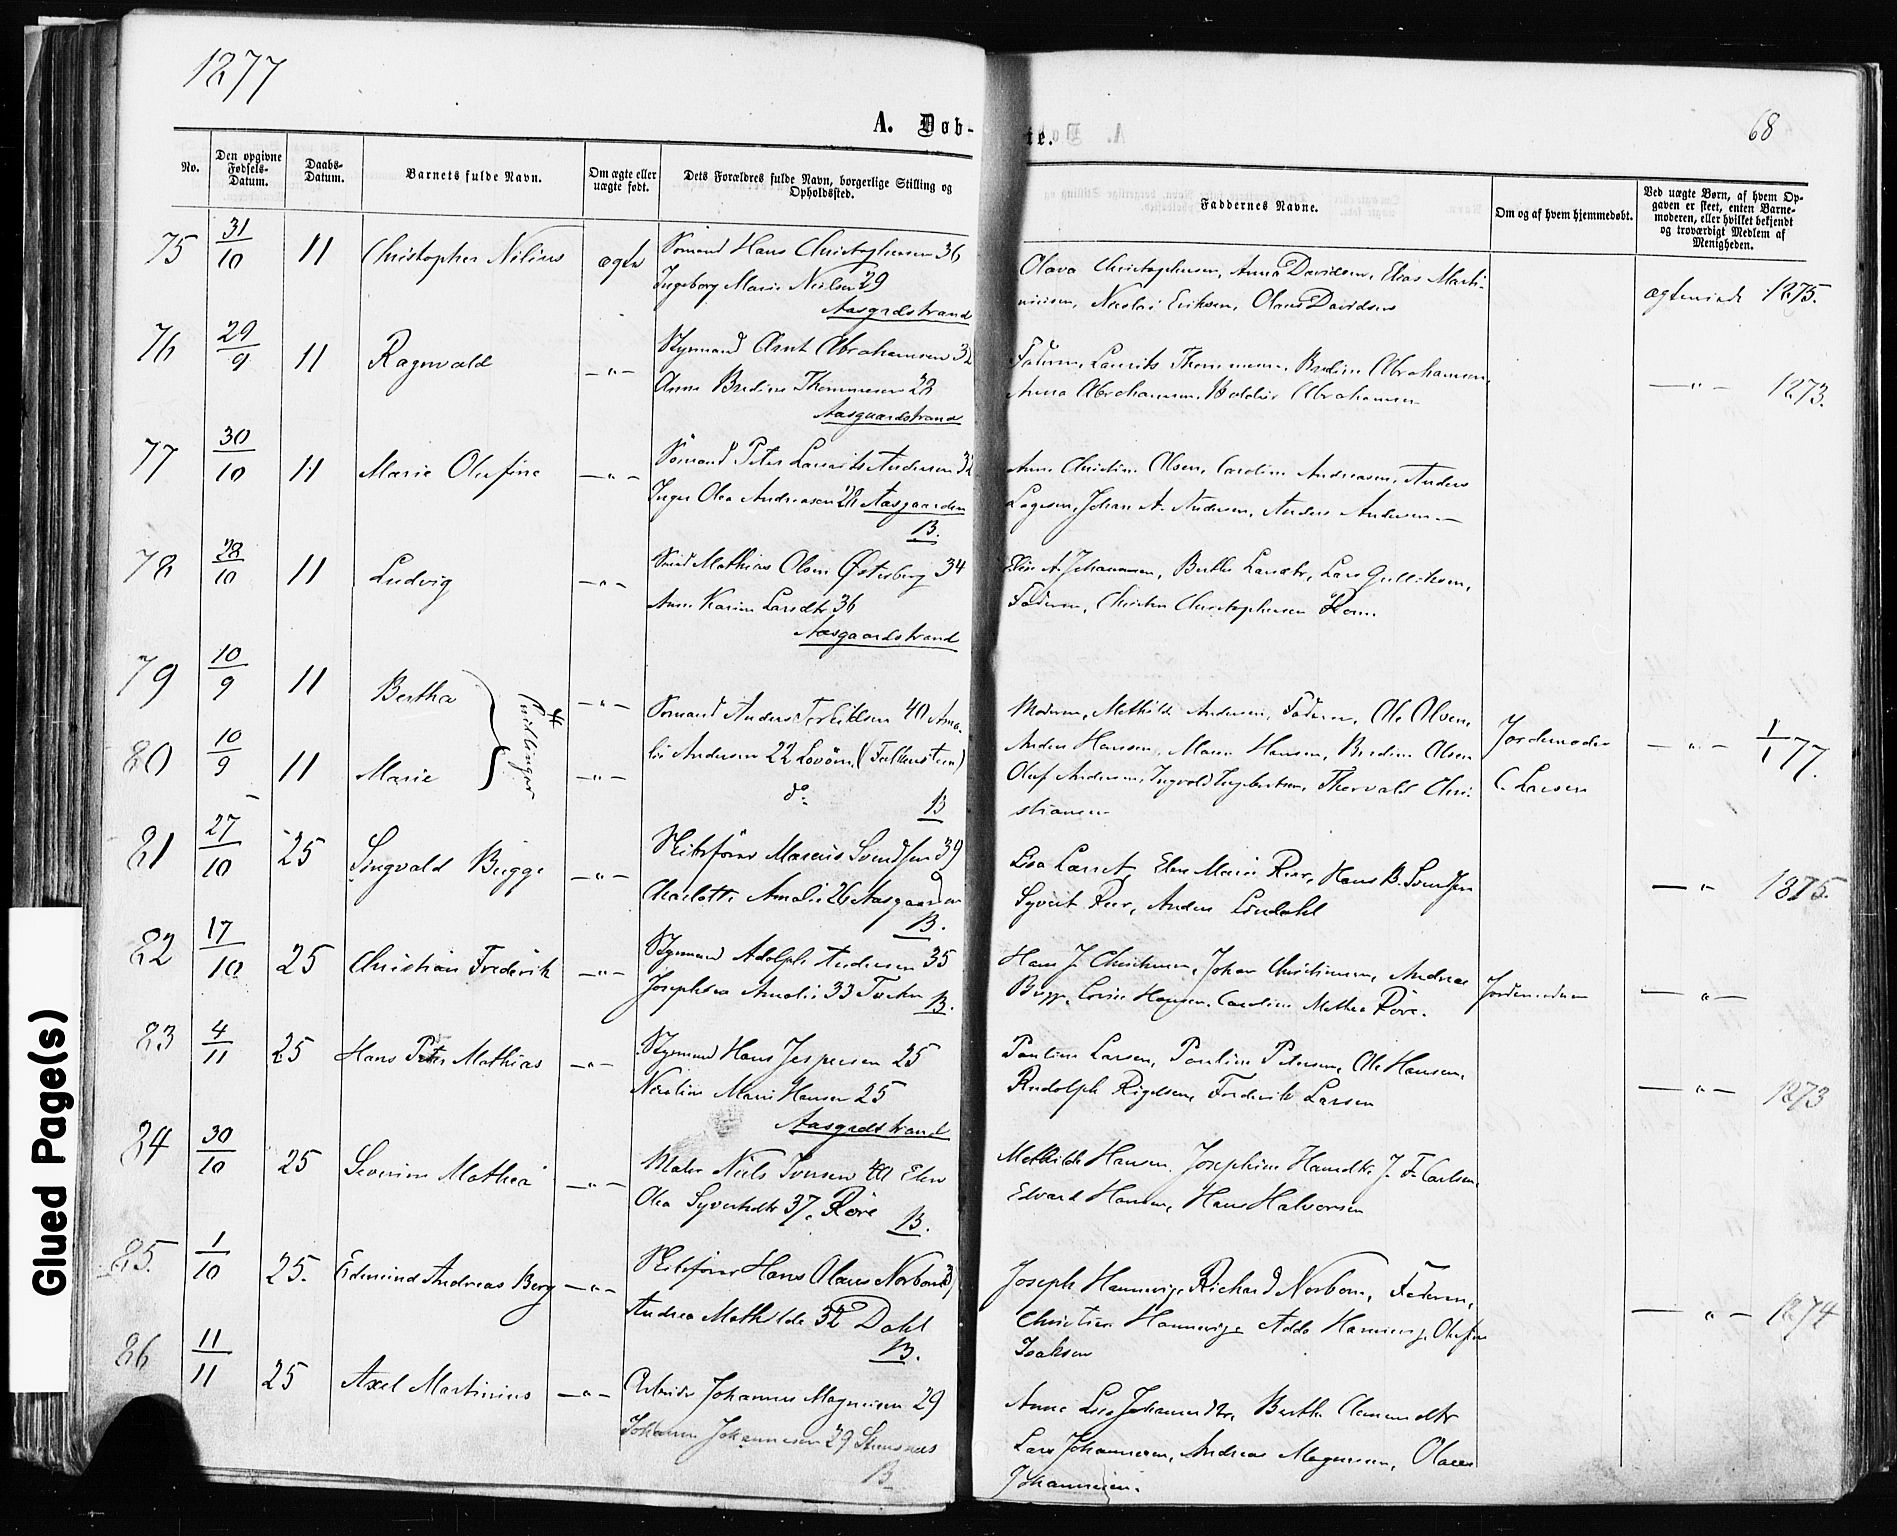 1877
A. Døb-
te.
68
No.
Den opgivne Fødsels-Datum.
Daabs-Datum.
Barnets fulde Navn.
Om ægte eller uægte født.
Dets Forældres fulde Navn, borgerlige Stilling og Opholdssted.
Faddernes Navne.
Om og af hvem hjemmedøbt.
Ved uægte Børn, af hvem Op-
gaven er skeet, enten Barne-
moderen, eller hvilket bekjendt
og troværdigt Medlem af
Menigheden.
75 31/10 11 Christopher Nilius ægte Sømand Hans Christophersen 36
Ingeborg Marie Nielsen 29
Aasgrdstrand
Olava Christophersen, Anna Davidsen, Elias Marti-
niusen, Nicolai Eriksen, Olaus Davidsen
1875.
76 29/9 11 Ragnvald — " — Styrmand Arnt Abrahamsen 32
Anna Bredine Thommesen 23
Aasgaardstrand
Faderen, Laurits Thommesen, Bredine Abrahamsen,
Anna Abrahamsen, Abrahamsen
— " — 1873.
77 30/10 11 Marie Olufine — " — Sømand Peter Laurits Andersen 32
Inger Olea Andreasen 28 Aasgaarden
B.
Anne Christine Olsen, Caroline Andreasen, Anders
Johan A. Andersen, Anders Andersen —
78 28/10 11 Ludvig — " — Smed Mathias Olsen Østerberg 34
Anne Karine Larsdtr 36
Aasgaardstrand
Elise A. Johannesen, Berthe Larsdtr, Lars Gulliksen,
Faderen, Christen Christophersen
79 10/9 11 Bertha — " —
Tvillinger
Sømand Anders 40 Ama-
lie Andersen 22 Løvøen (Falkensteen)
do. B
80 10/9 11 Marie — " —
Moderen, Mathilde Andersen, Faderen, Ole Olsen,
Anders Hansen, Maren Hansen, Bredine Olsen
Oluf Andersen, Ingvold Engebretsen, Thorvald Chri-
stiansen
Jordemoder
C. Larsen
— " — 1/1 77.
81 27/10 25 Singvald Bugge — " — Skibsfører Marcus Svendsen 39
Charlotte Amalie 26 Aasgaarden
B.
Lisa Larsdt, Elen Marie Rier, Hans B. Svendsen
Syvert Rier, Anders Lindahl
— " 1875.
82 17/10 25 Christian Frederik — " — Styrmand Adolph Andersen 35
Josephina Amalie 33 B.
Hans J. Christensen, Johan Christiansen, Andreas
Bugge, Lovise Hansen, Caroline Mathea Røre.
Jordemoderen
— " —
83 4/11 25 Hans Peter Mathias — " — Styrmand Hans Jespersen 25
Nicoline Marie Hansen 25
Aasgrdstrand
Pauline Larsen, Pauline Petersen, Ole Hansen,
Rudolph Frederik Larsen
— " — 1873
84 30/10 25 Severine Mathea — " — Maler Niels Iversen 40 Elen
Olea Syvertsdtr 37. Røre B.
Mathilde Hansen, Josephine Hansdtr, J. F. Carlsen,
Edvard Hansen, Hans Halvorsen
85. 1/10 25. Edmund Andreas Berg — " — Skibsfører Hans Olaus Norbom
Andrea Mathilde 32 Dahl
B.
Joseph Hannevig, Richard Norbom, Faderen,
Christine Hannevig, Adda Hannevig, Olufine
Isaksen
— " — 1874
86 11/11 25 Axel Martinius — " — Arbeider Johannes Magnusen 29
Johanne Johannesen 29
B.
Anne Lisa Johannesdtr, Berthe Clemmedtr
Lars Johannesen, Andreas Magnusen, Olaus
Johannesen.
Glued Page(s)